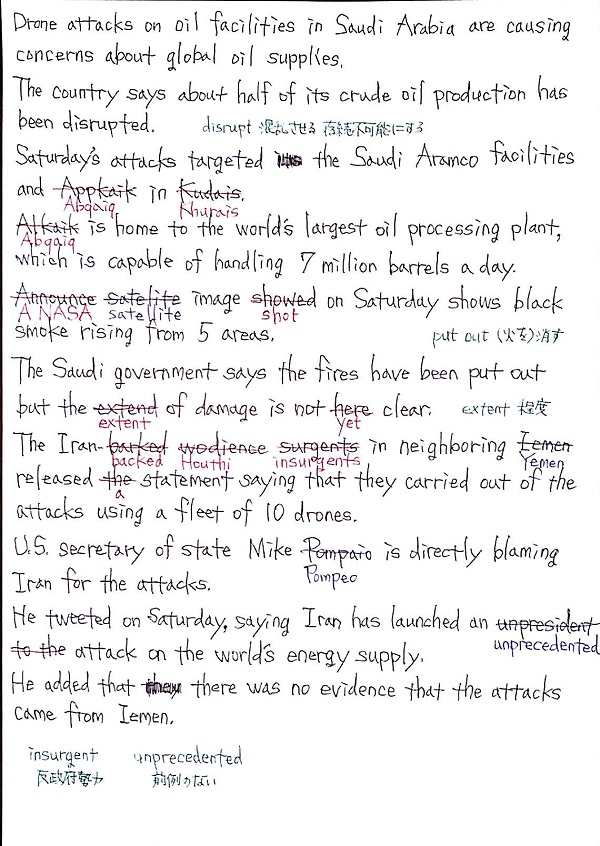 Drone attacks on oil facilities in Saudi Arabia are causing
concerns about global oil supplies.
The country says about half of its crude oil production has
been disrupted. disrupt 混乱させる 存続を不可能にする
Saturday's attacks targeted the Saudi Aramco facilities
and Appkaik in Kudais.
Abqaiq Khurais
Atkaik is home to the world's largest oil processing plant,
Abqaiq
which is capable of handling 7 million barrels a day.
Announce satelite image showed on Saturday shows black
A NASA satellite shot
smoke rising from 5 areas. put out (火を)消す
The Saudi government says the fires have been put out
but the extend of damage is not here clear. extent 程度
extent yet
The Iran-barked wodience surgents in neighboring Iemen
backed Houthi insurgents Yemen
released the statement saying that they carried out of the
a
attacks using a fleet of 10 drones.
U.S. secretary of state Mike Pompaio is directly blaming
Pompeo
Iran for the attacks.
He tweeted on Saturday, saying Iran has launched an unpresident
unprecedented
to the attack on the world's energy supply.
He added that they there was no evidence that the attacks
came from Iemen.
insurgent unprecedented
反政府勢力 前例のない